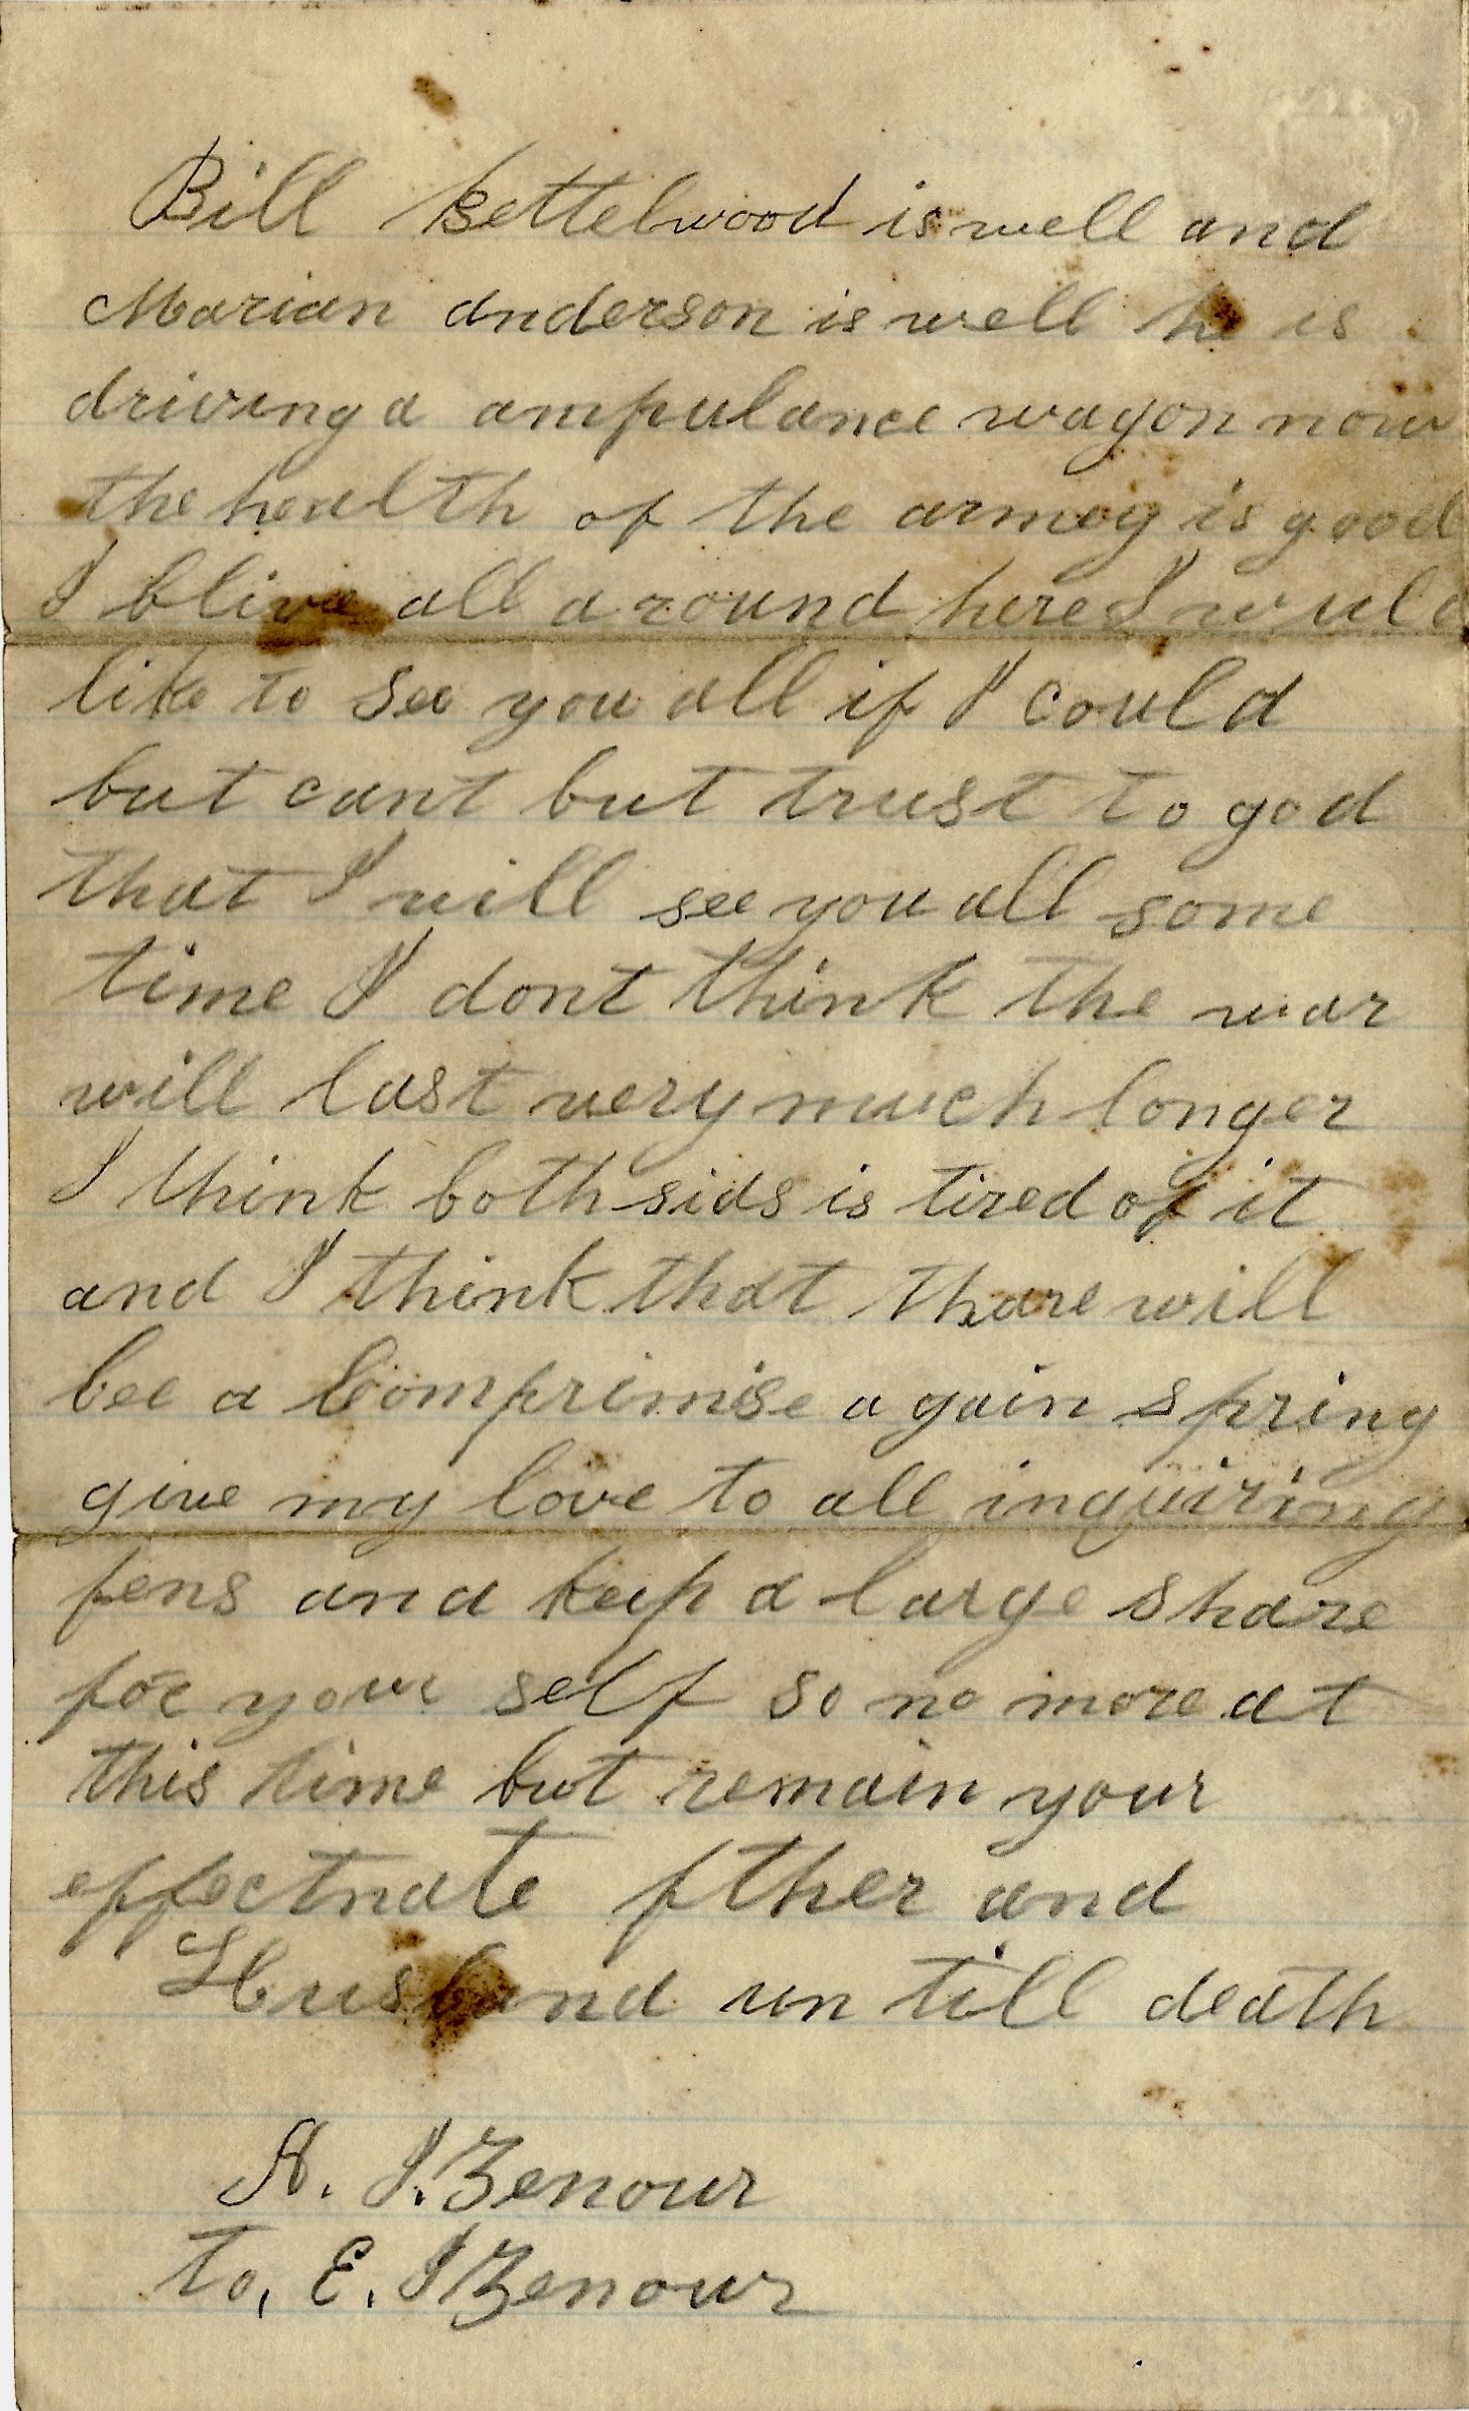 Bill Kettelwood is well and
Marian anderson is well he is
driving a ampulance wagon now
the health of the armey is good
I blive all a round here I wuld
like to see you all if I could
but cant but trust to god
that I will see you all some
time I dont think the war
will last very much longer
I think both sids is tired of it
and I think that thare will
bee a Comprimise a gain spring
give my love to all inquiring
fens and keep a large share
for your self so no more at
this time but remain your
effectnate fther and
Husband un till death
A. IZenour
to, E. IZenour